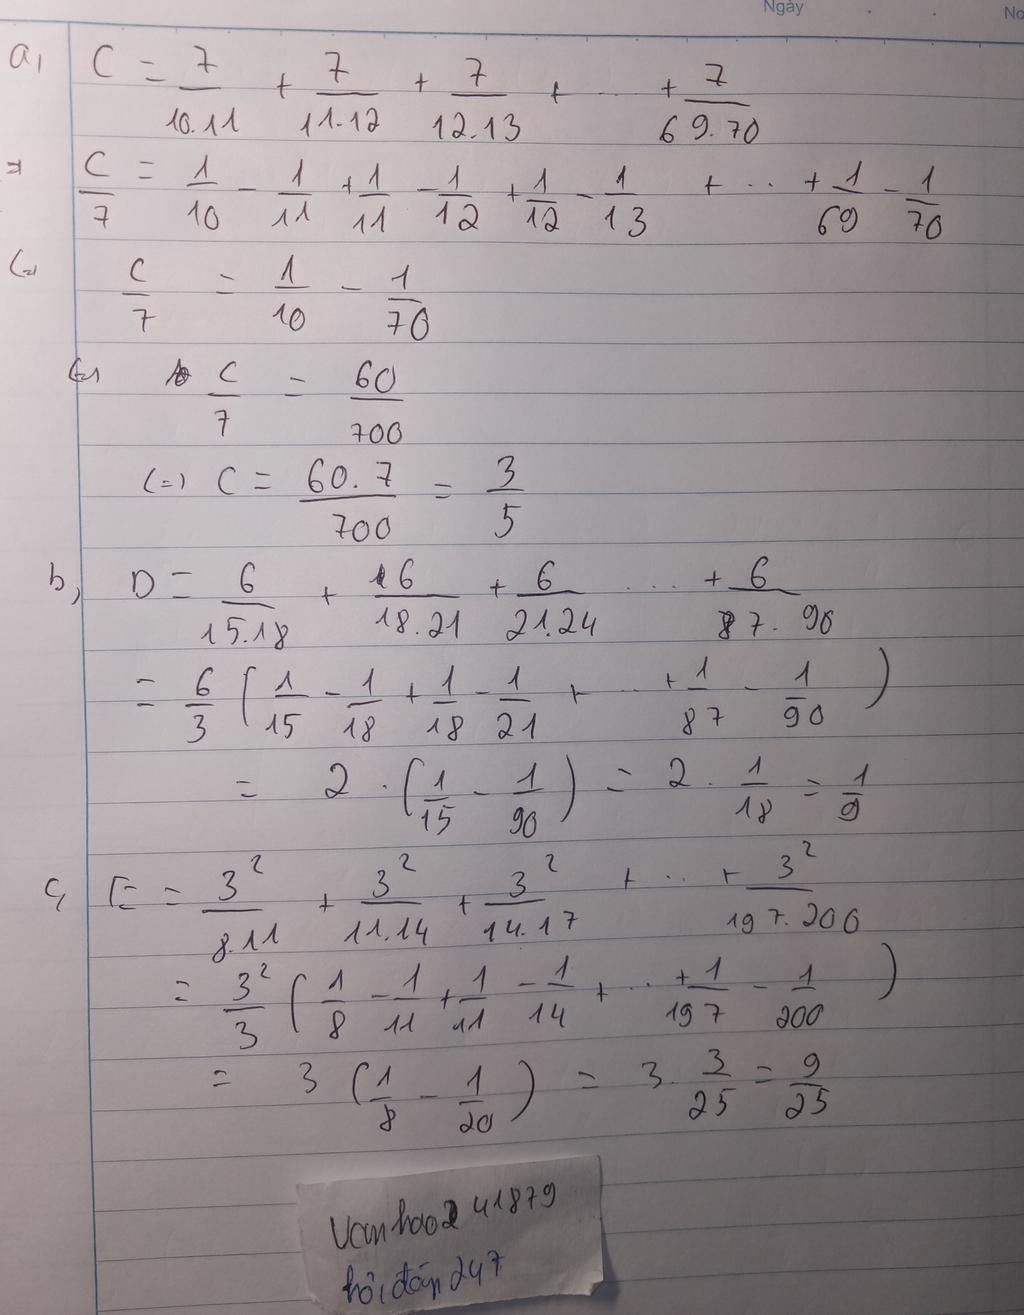 Ngày . . No
a, C = 7/10.11 + 7/11.12 + 7/12.13 + ... + 7/69.70
=> C/7 = 1/10 - 1/11 + 1/11 - 1/12 + 1/12 - 1/13 + ... + 1/69 - 1/70
(=) C/7 = 1/10 - 1/70
(=) C/7 = 60/700
(=) C = 60.7/700 = 3/5
b, D = 6/15.18 + 6/18.21 + 6/21.24 .... + 6/87.90
= 6/3 (1/15 - 1/18 + 1/18 - 1/21 + ... + 1/87 - 1/90)
= 2 . (1/15 - 1/90) = 2 . 1/18 = 1/9
c, E = 3²/8.11 + 3²/11.14 + 3²/14.17 + ... + 3²/197.200
= 3²/3 (1/8 - 1/11 + 1/11 - 1/14 + ... + 1/197 - 1/200)
= 3 (1/8 - 1/20) = 3 . 3/25 = 9/25
Vanhao241879
hỏi đáp 247